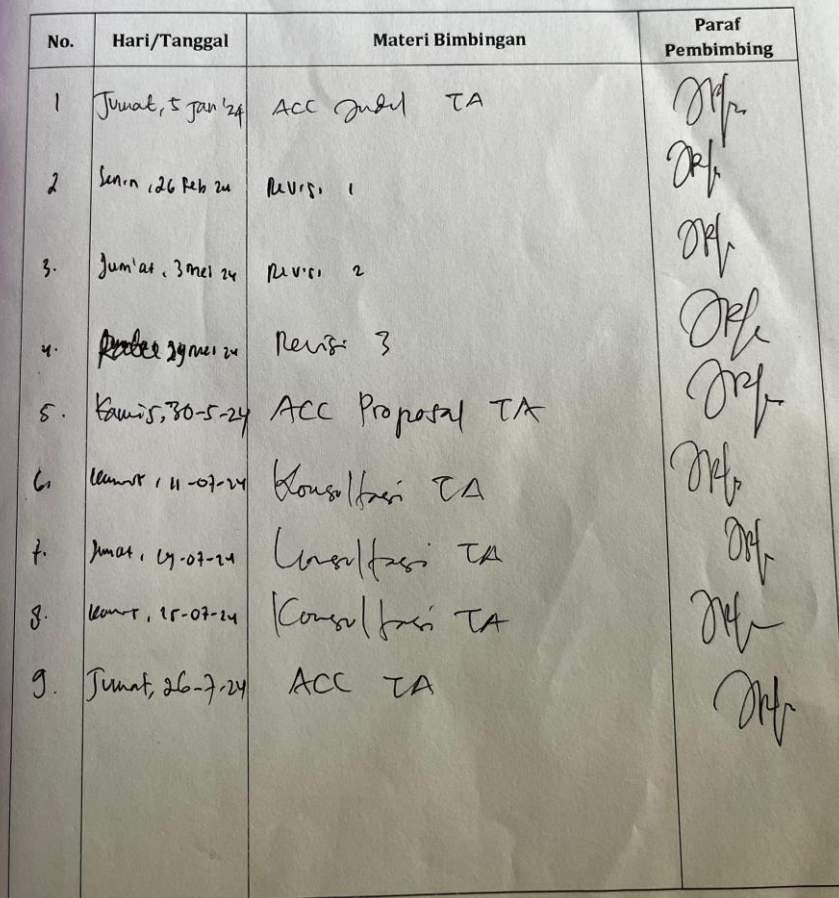 No. Hari/Tanggal Materi Bimbingan Paraf
Pembimbing
1 Jumat, 5 Jan '24 ACC Judul TA
2 Senin, 26 Feb 24 Revisi 1
3. Jum'at, 3 mei 24 Revisi 2
4. 29 mei 24 Revisi 3
5. Kamis, 30-5-24 ACC Proposal TA
6. Kamis, 11-07-24 Konsultasi TA
7. Jumat, 19-07-24 Konsultasi TA
8. Kamis, 25-07-24 Konsultasi TA
9. Jumat, 26-7-24 ACC TA